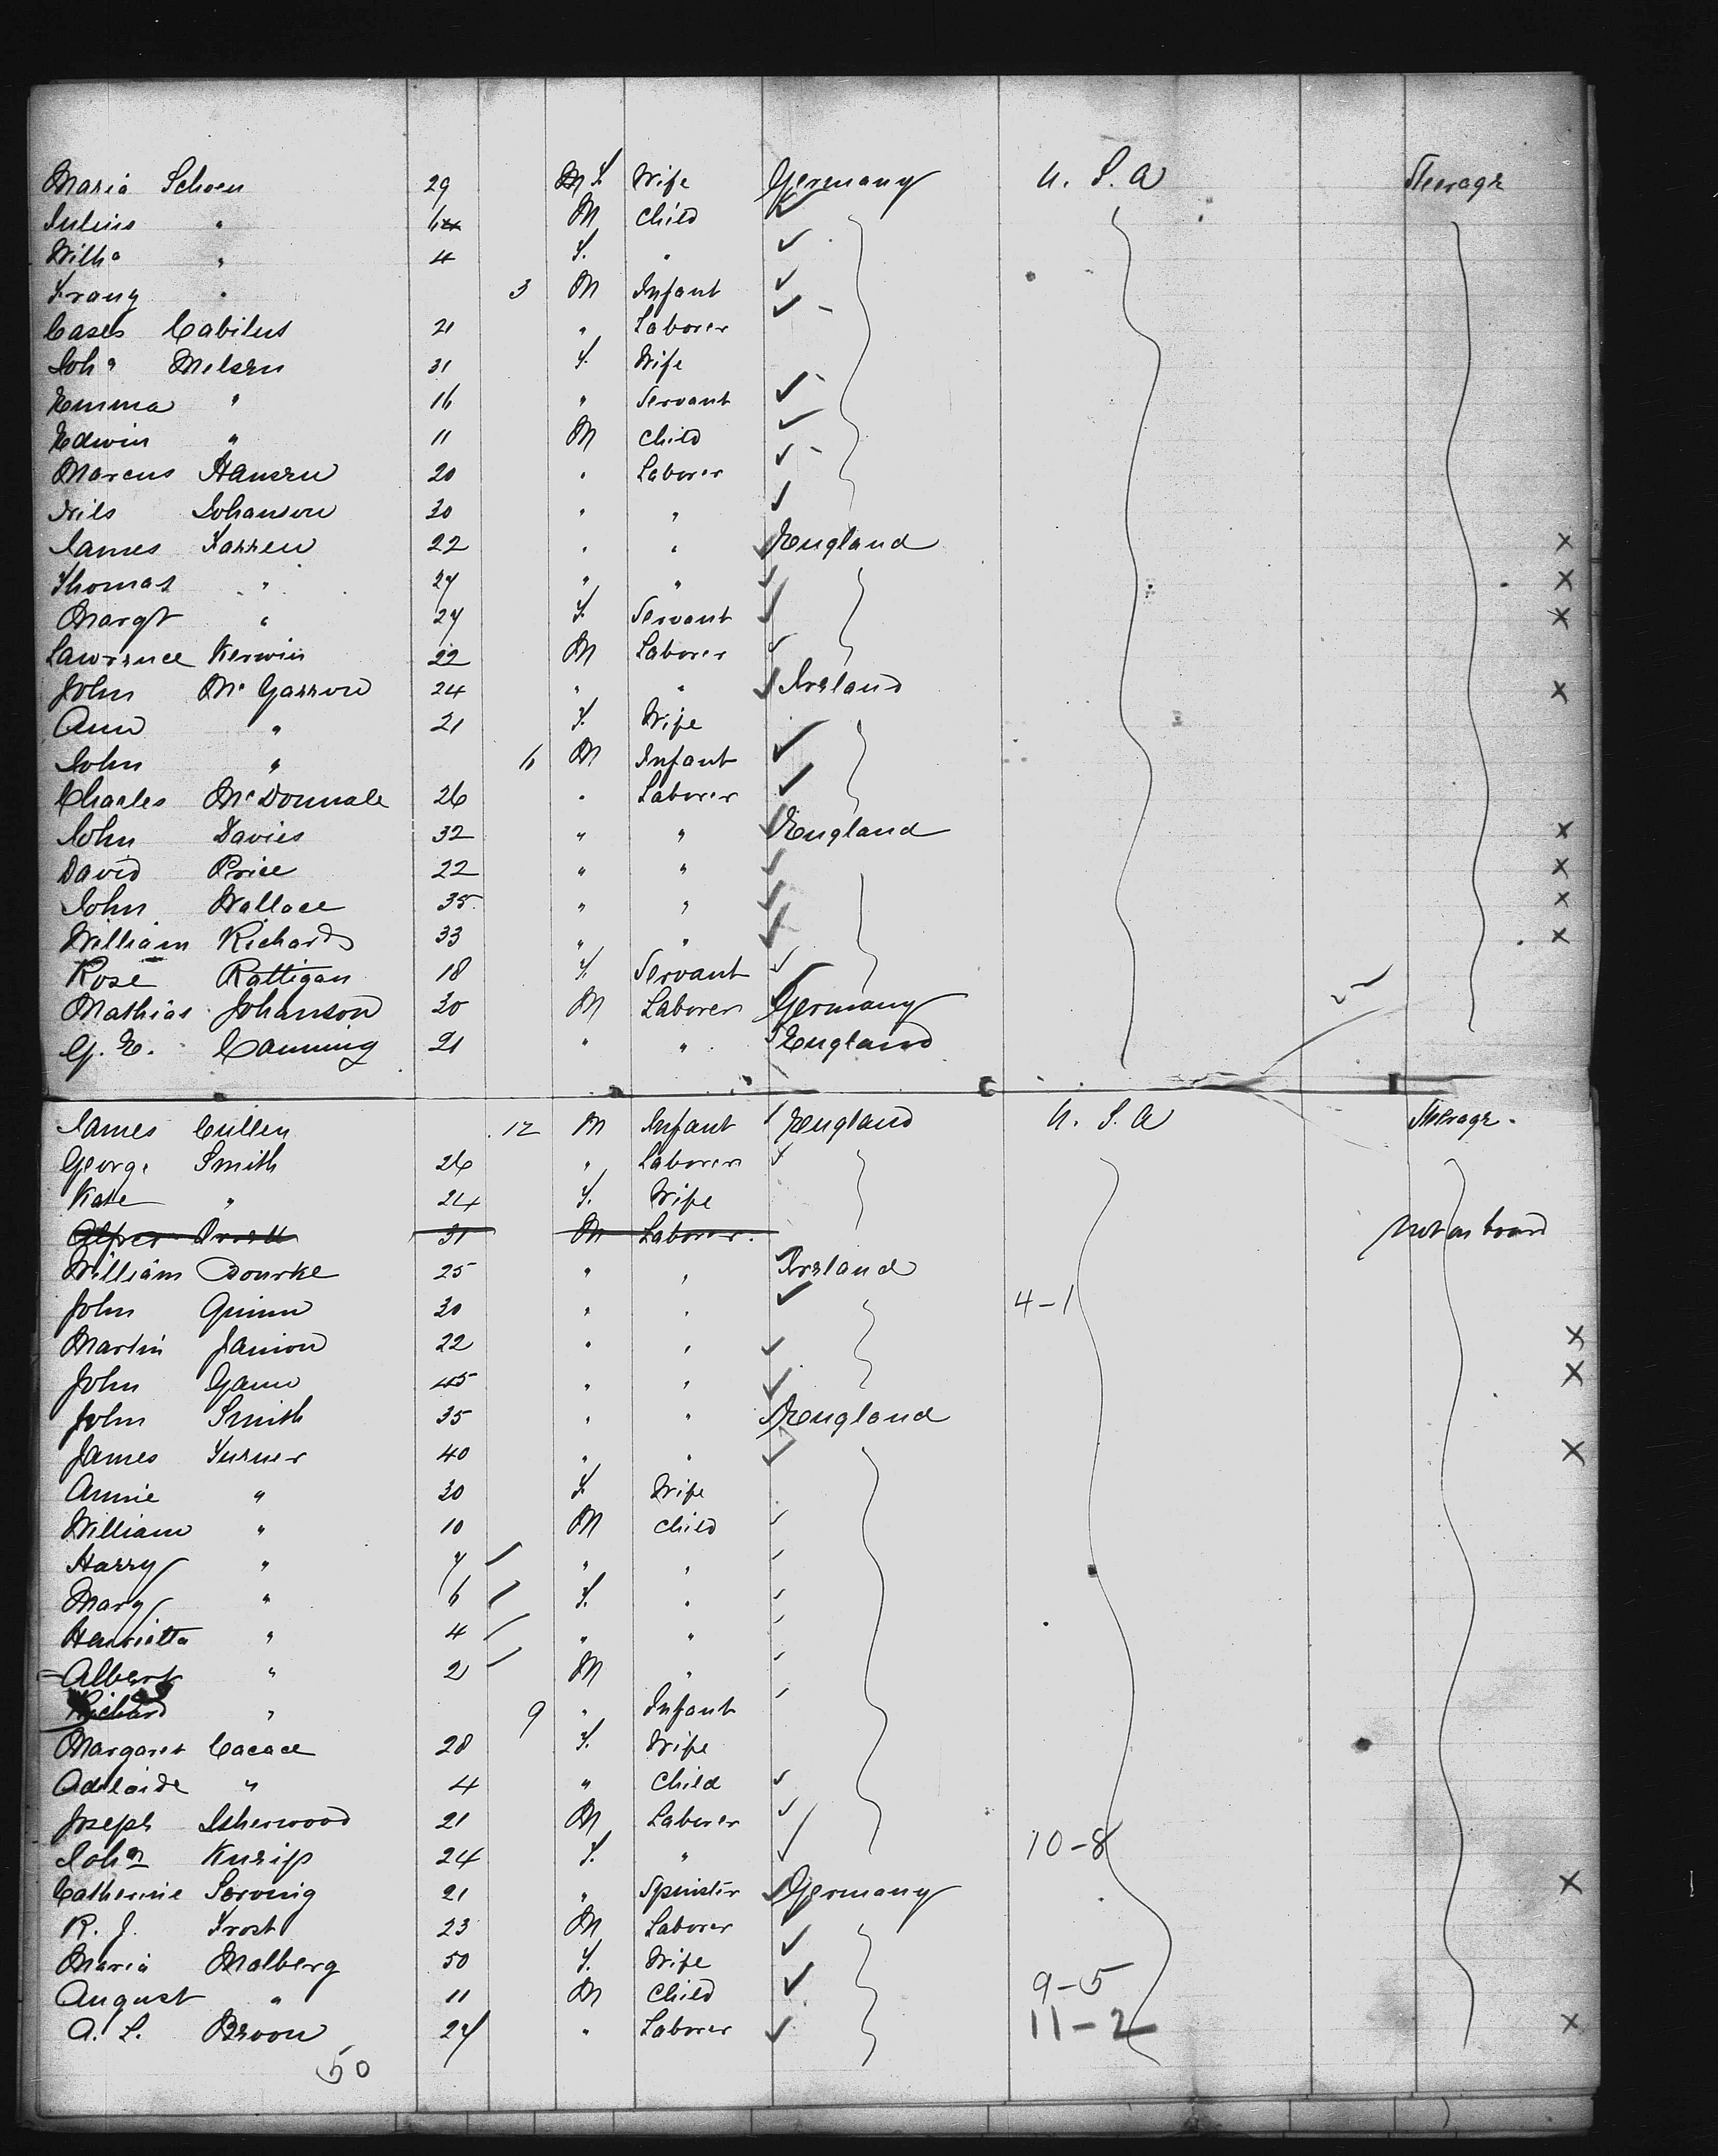 Maria Schoen 29 F. Wife Germany U. S. A Steerage
Julius " 6 M Child
Willh a " 4 F. "
Franz " 3 M Infant
Cases Cabilus 21 " Laborer
Joh a Melsen 31 F. Wife
Emma " 16 " Servant
Edwin " 11 M Child
Marcus Hansen 20 " Laborer
Nils Johanson 30 " "
James Farren 22 " " England X
Thomas " 27 " " X
Margt " 27 F. Servant X
Lawrence Kerwin 22 M Laborer
John Mc Garron 24 " " Ireland X
Ann " 21 F. Wife
John " 6 M Infant
Charles McDonnale 26 " Laborer
John Davies 32 " " England X
David Price 22 " " X
John Wallace 35 " " X
William Richards 33 " " X
Rose Rattigan 18 F. Servant
Mathias Johanson 30 M Laborer Germany
G. E. Canning 21 " " England
James Cullen 12 M Infant England U. S. A Steerage.
George Smith 26 " Laborer
Kate " 24 F. Wife
31 M Laborer. Not on board
William Bourke 25 " " Ireland
John Quinn 30 " " 4-1
Martin Janion 22 " " X
John Gann 45 " " X
John Smith 35 " " England
James Turner 40 " " X
Annie " 30 F. Wife
William " 10 M Child
Harry " 7 " "
Mary " 6 F. "
Henrietta " 4 " "
Albert " 2 M "
Richard " 9 " Infant
Margaret Cacace 28 F. Wife
Adelaide " 4 " Child
Joseph Isherwood 21 M Laborer
Joh n Kuripp 24 F. " 10-8
Catherine Sorvnig 21 " Spinster Germany X
R. J. Frost 23 M Laborer
Maria Malberg 50 F. Wife
August " 11 M Child 9-5
A. L. Broon 27 " Laborer 11-2 X
50